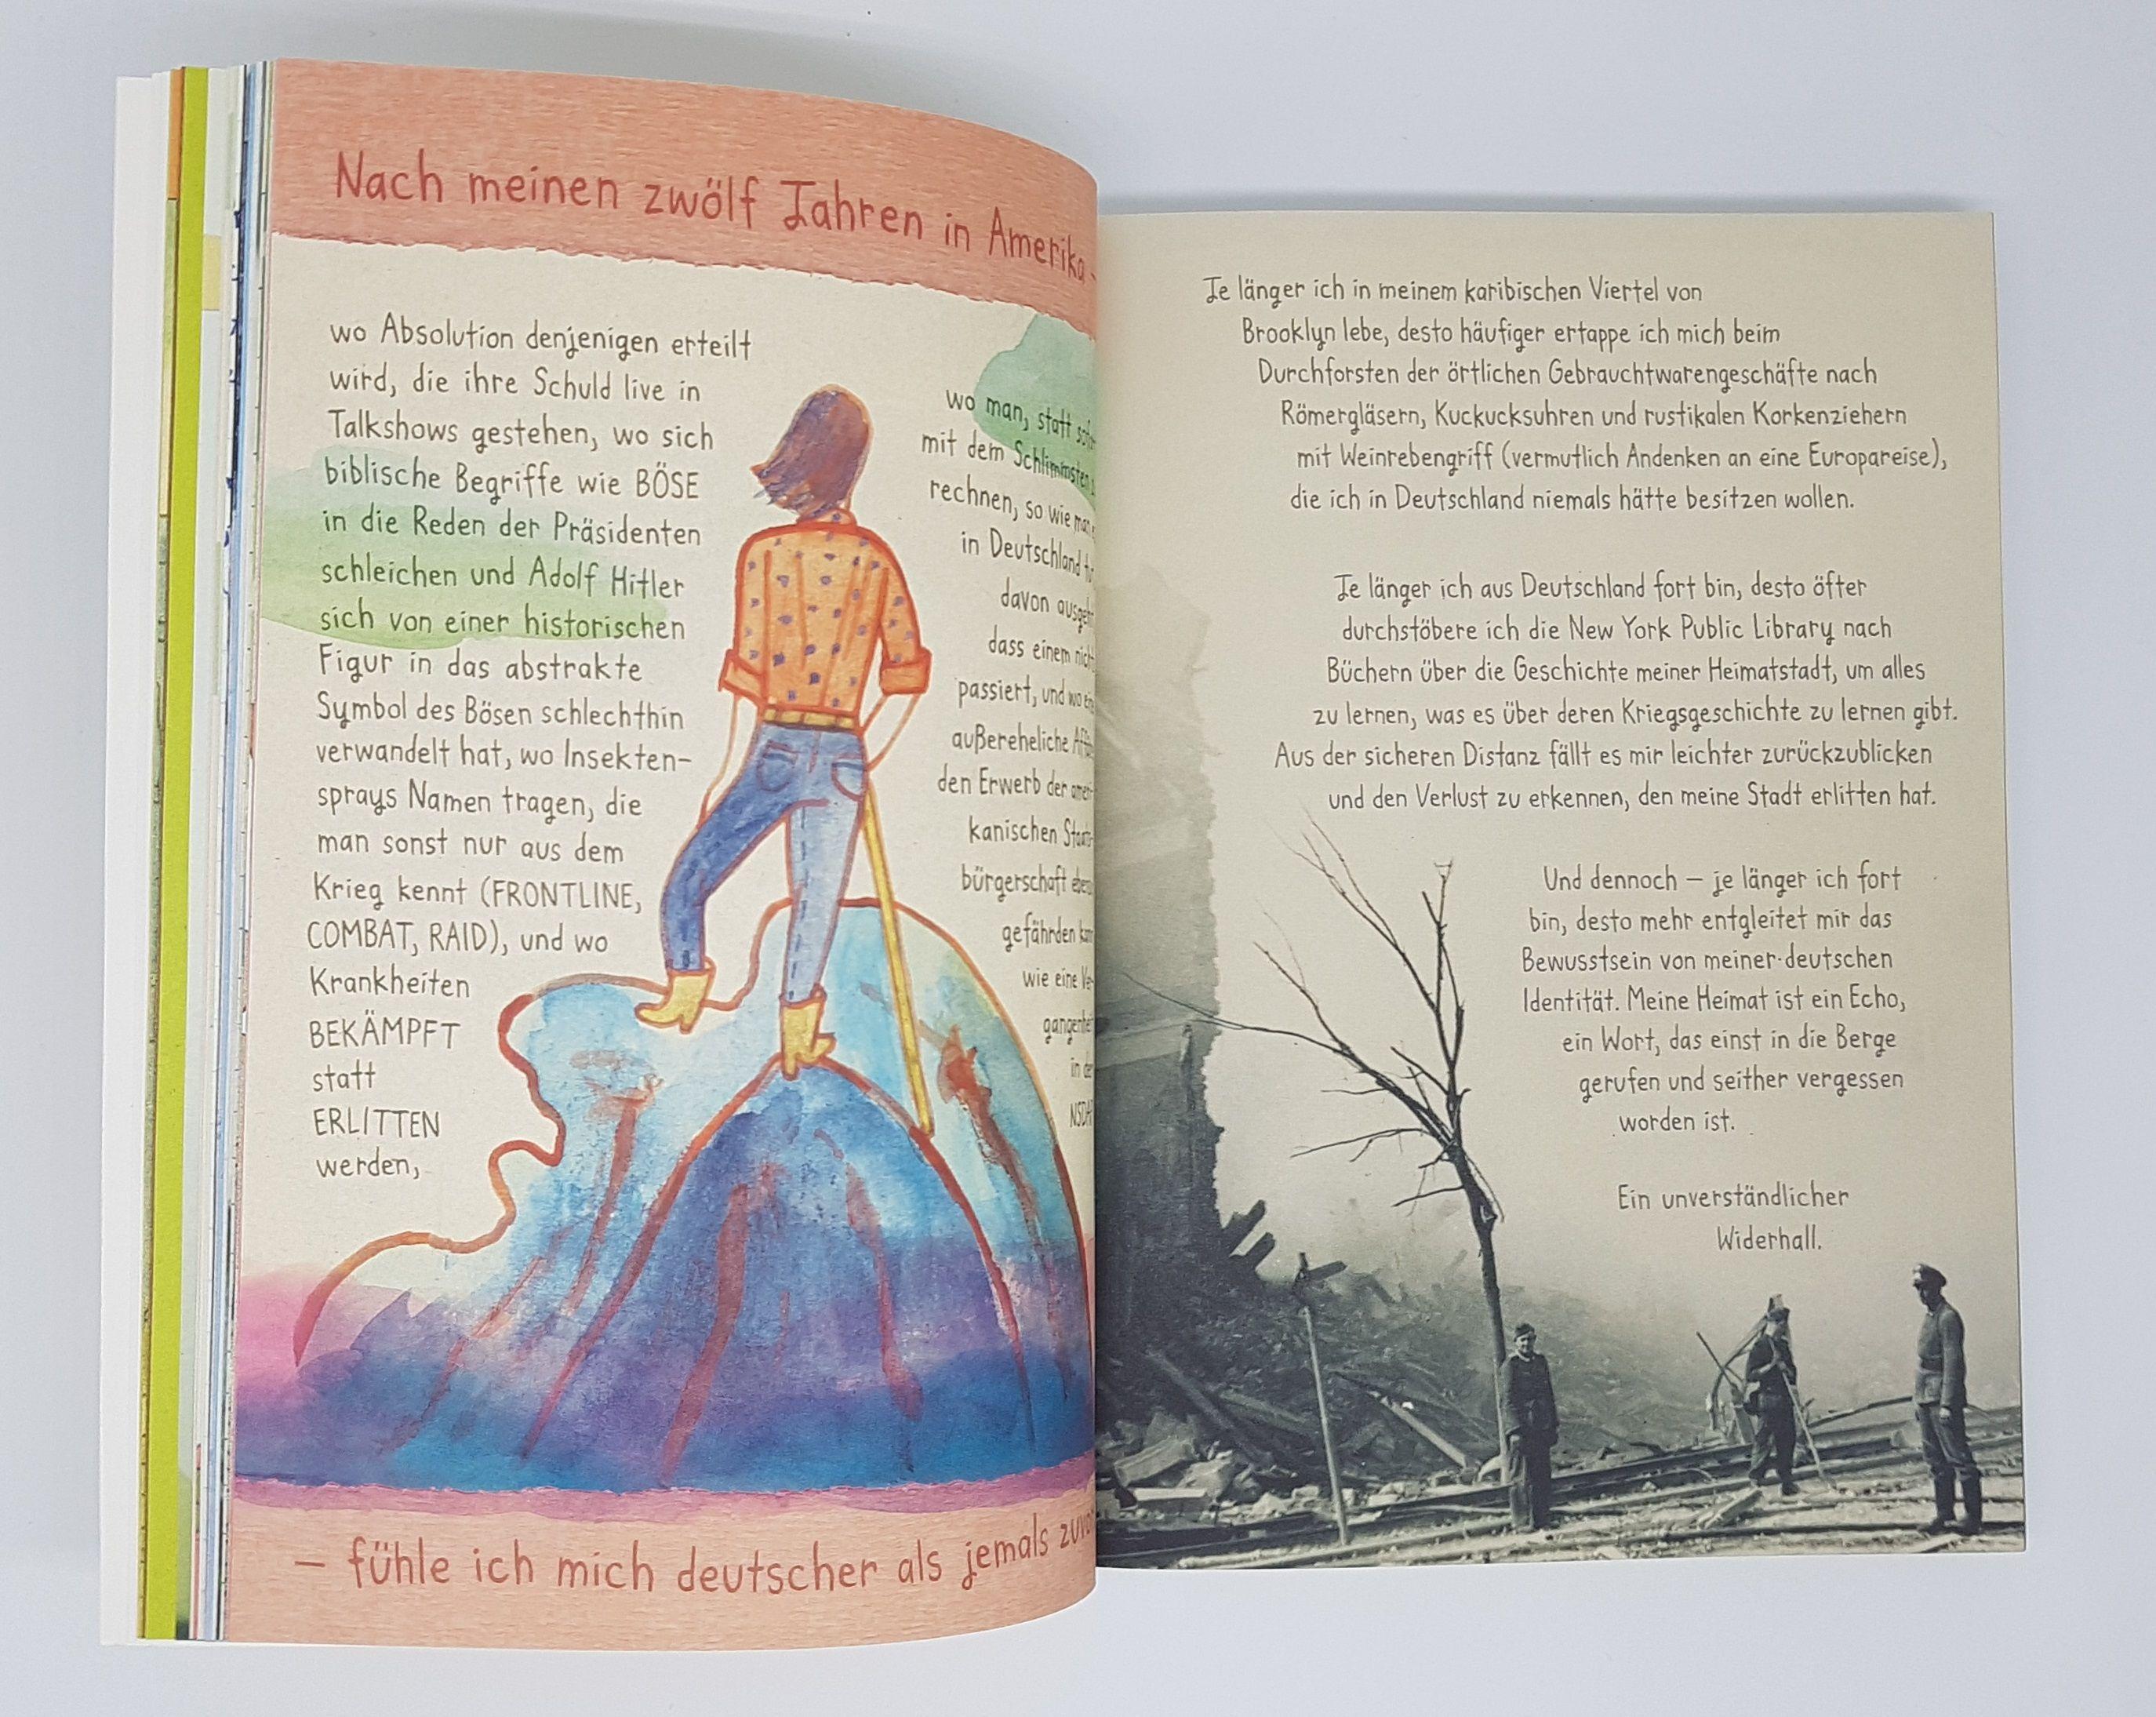 Nach meinen zwölf Jahren in Amerika –
wo Absolution denjenigen erteilt
wird, die ihre Schuld live in
Talkshows gestehen, wo sich
biblische Begriffe wie BÖSE
in die Reden der Präsidenten
schleichen und Adolf Hitler
sich von einer historischen
Figur in das abstrakte
Symbol des Bösen schlechthin
verwandelt hat, wo Insekten-
sprays Namen tragen, die
man sonst nur aus dem
Krieg kennt (FRONTLINE,
COMBAT, RAID), und wo
Krankheiten
BEKÄMPFT
statt
ERLITTEN
werden,
wo man, statt
mit dem Schlimmsten
rechnen, so wie man
in Deutschland
davon
dass einem
passiert, und wo
außereheliche
den Erwerb der
kanischen
bürgerschaft
gefährden
wie eine
in
– fühle ich mich deutscher als jemals
Je länger ich in meinem karibischen Viertel von
Brooklyn lebe, desto häufiger ertappe ich mich beim
Durchforsten der örtlichen Gebrauchtwarengeschäfte nach
Römergläsern, Kuckucksuhren und rustikalen Korkenziehern
mit Weinrebengriff (vermutlich Andenken an eine Europareise),
die ich in Deutschland niemals hätte besitzen wollen.
Je länger ich aus Deutschland fort bin, desto öfter
durchstöbere ich die New York Public Library nach
Büchern über die Geschichte meiner Heimatstadt, um alles
zu lernen, was es über deren Kriegsgeschichte zu lernen gibt.
Aus der sicheren Distanz fällt es mir leichter zurückzublicken
und den Verlust zu erkennen, den meine Stadt erlitten hat.
Und dennoch – je länger ich fort
bin, desto mehr entgleitet mir das
Bewusstsein von meiner deutschen
Identität. Meine Heimat ist ein Echo,
ein Wort, das einst in die Berge
gerufen und seither vergessen
worden ist.
Ein unverständlicher
Widerhall.